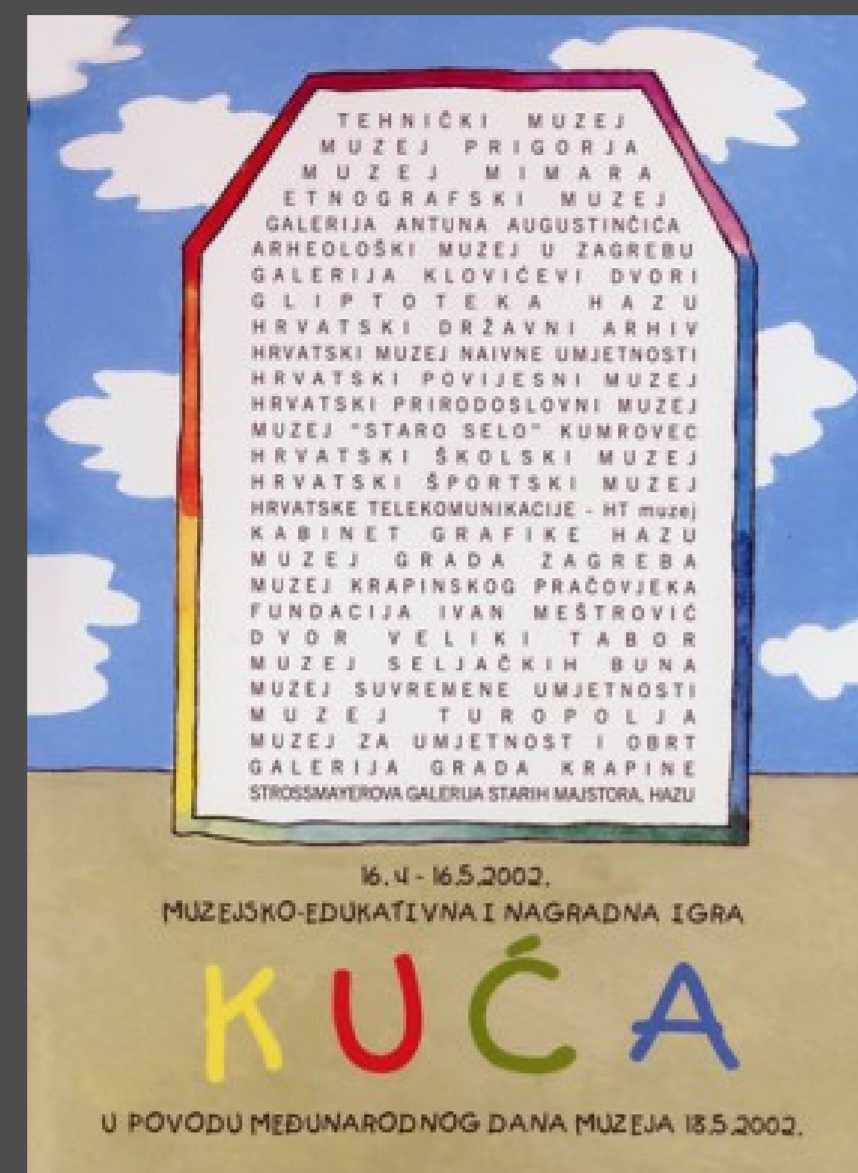 TEHNIČKI MUZEJ
MUZEJ PRIGORJA
MUZEJ MIMARA
ETNOGRAFSKI MUZEJ
GALERIJA ANTUNA AUGUSTINČIĆA
ARHEOLOŠKI MUZEJ U ZAGREBU
GALERIJA KLOVIĆEVI DVORI
GLIPTOTEKA HAZU
HRVATSKI DRŽAVNI ARHIV
HRVATSKI MUZEJ NAIVNE UMJETNOSTI
HRVATSKI POVIJESNI MUZEJ
HRVATSKI PRIRODOSLOVNI MUZEJ
MUZEJ "STARO SELO" KUMROVEC
HRVATSKI ŠKOLSKI MUZEJ
HRVATSKI ŠPORTSKI MUZEJ
HRVATSKE TELEKOMUNIKACIJE - HT muzej
KABINET GRAFIKE HAZU
MUZEJ GRADA ZAGREBA
MUZEJ KRAPINSKOG PRAČOVJEKA
FUNDACIJA IVAN MEŠTROVIĆ
DVOR VELIKI TABOR
MUZEJ SELJAČKIH BUNA
MUZEJ SUVREMENE UMJETNOSTI
MUZEJ TUROPOLJA
MUZEJ ZA UMJETNOST I OBRT
GALERIJA GRADA KRAPINE
STROSSMAYEROVA GALERIJA STARIH MAJSTORA, HAZU
16.4 - 16.5.2002.
MUZEJSKO-EDUKATIVNA I NAGRADNA IGRA
KUĆA
U POVODU MEĐUNARODNOG DANA MUZEJA 18.5.2002.